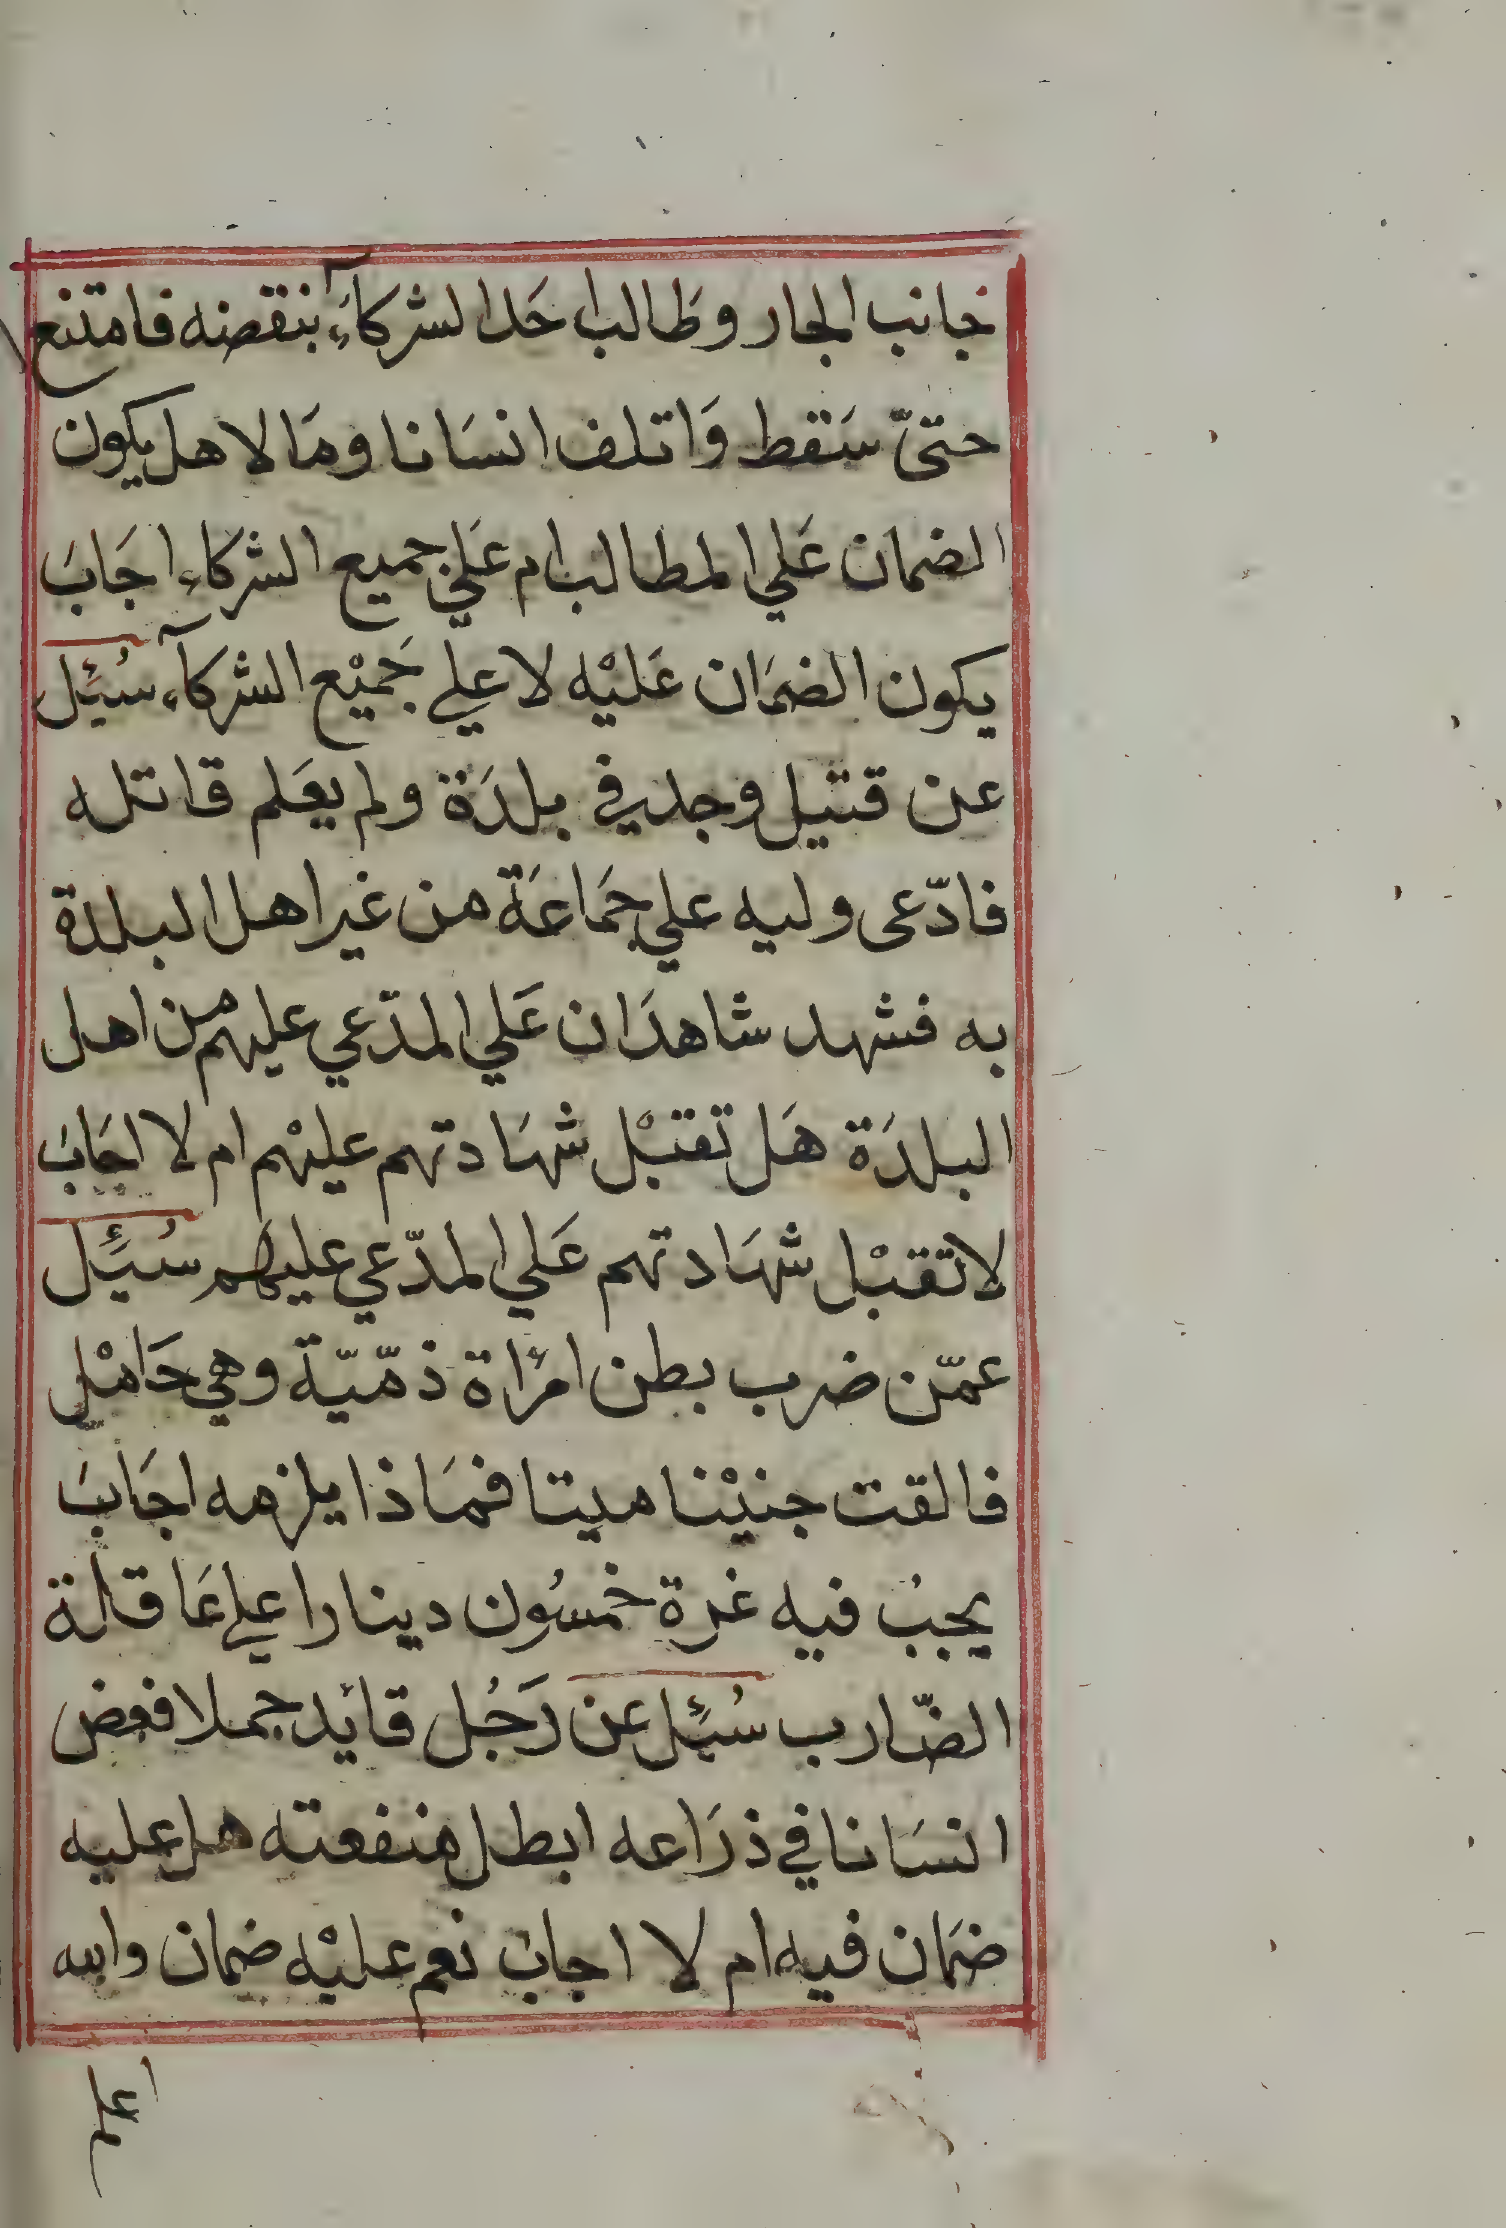 جانب الجار وطالب احَد الشركآء بنقضه فامتنع
حتىّ سَقط وَاتلف انسَانا ومَالا هل يكون
الضمان عَلي المطالب ام عَلي جميع الشركاء اجَابَ
يكون الضمَان عَليْه لا علي جَميْع الشركآء سُئِل
عن قتيل وجد في بلدَة ولم يعَلم قاتله
فادّعى وليه علي جمَاعَة من غير اهل البلدة
به فشهد شاهدَان عَلي المدّعي عليهم من اهل
البلدَة هَل تقبْل شهَادتهم عليْهم ام لا اجَابَ
لا تقبْل شهَادتهم عَلي المدّعي عليهم سُئِل
عمّن ضرب بطن امرْأة ذمّيّة وهي حَامْل
فالقت جنيْنا ميتا فمَاذا يلزمه اجَابَ
يجبُ فيه غرة خمسُون دينارا علي عَاقلة
الضّارب سُئِل عن رَجُل قائد جملا فعض
انسَانا في ذرَاعه ابطل منفعته هل عليه
ضمَان فيه ام لا اجابَ نعم عليْه ضمان والله
اعلم